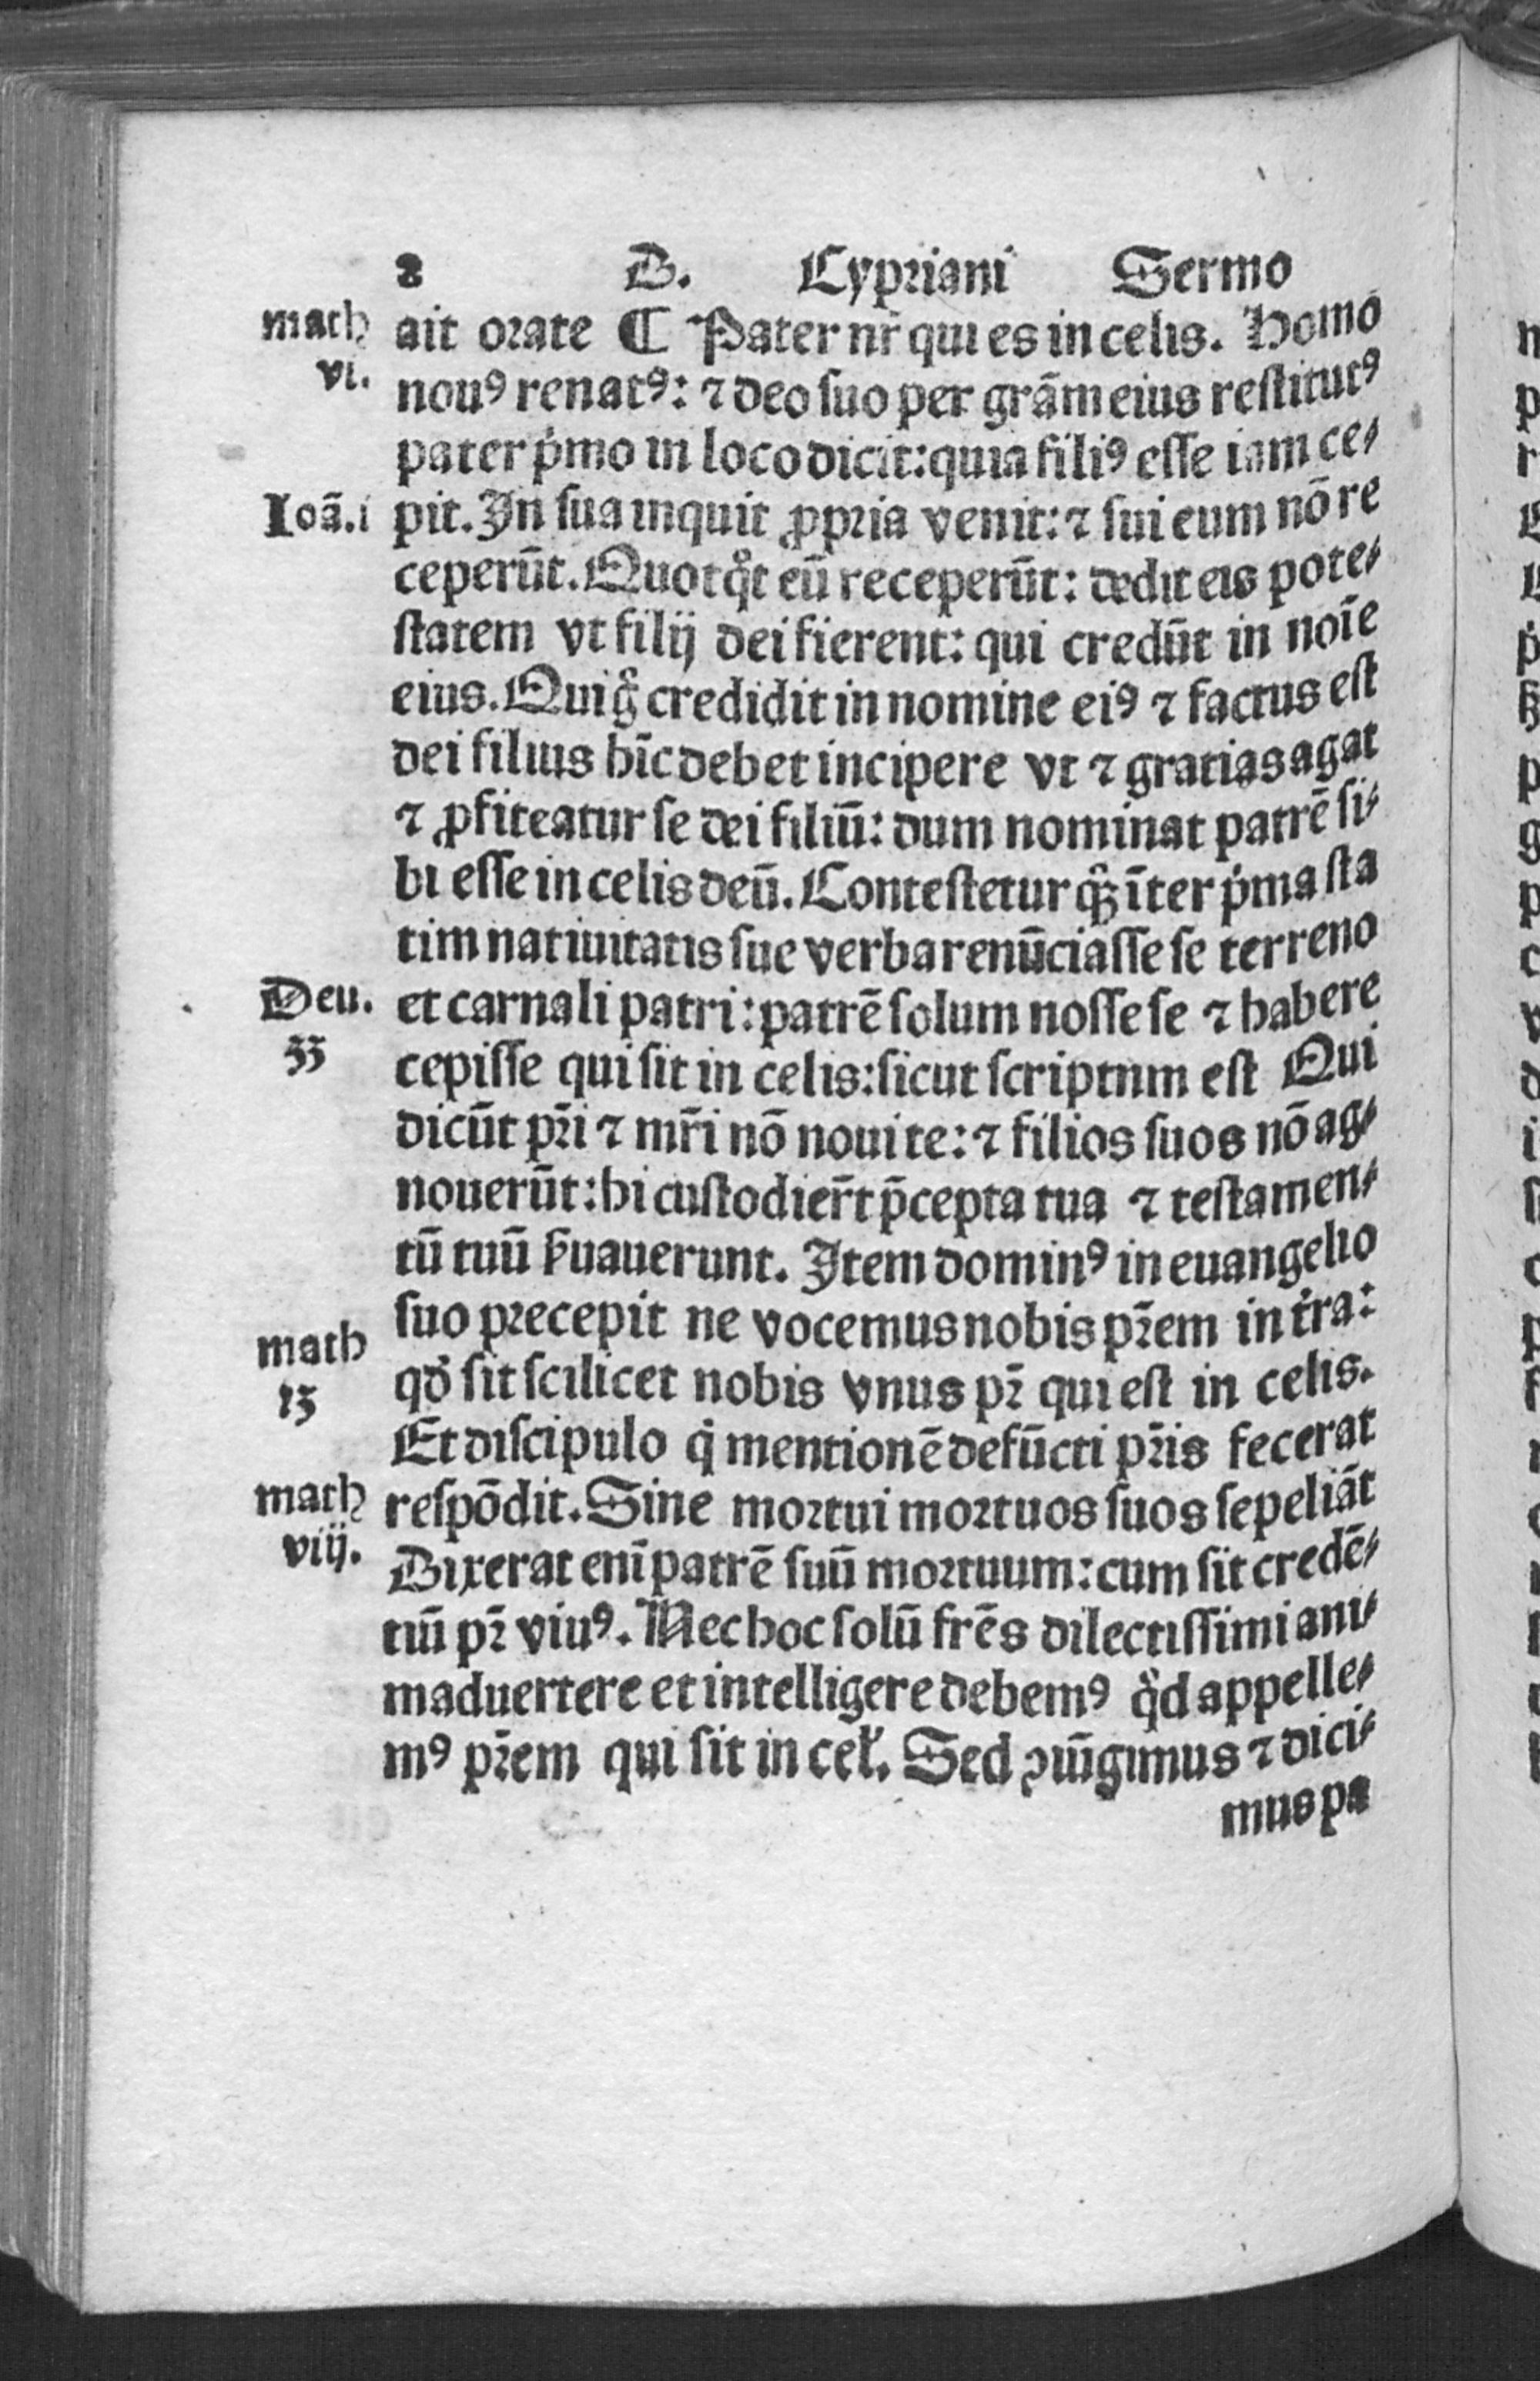 8 D. Cypriani Sermo
math
vi.
ait orate ¶ Pater nr̄ qui es in celis. Homo
nouꝰ renatꝰ: ⁊ deo ſuo per grãm eius reſtitutꝰ
pater p̍mo in loco dicit: quia filiꝰ eſſe iam ce⸗
Ioã.i
pit. In ſua inquit ꝓpria venit: ⁊ ſui eum nõ re
ceperũt. Quotqͦt eũ receperũt: dedit eis pote⸗
ſtatem vt filij dei fierent: qui credũt in noĩe
eius. Qui gͦ credidit in nomine eiꝰ ⁊ factus eſt
dei filius hĩc debet incipere vt ⁊ gratias agat
⁊ ꝓfiteatur ſe dei filiũ: dum nominat patrẽ ſi⸗
bi eſſe in celis deũ. Conteſtetur qͦꝫ ĩter p̍ma ſta
tim natiuitatis ſue verba renũciaſſe ſe terreno
Deu.
33
et carnali patri: patrẽ ſolum noſſe ſe ⁊ habere
cepiſſe qui ſit in celis: ſicut ſcriptnm eſt Qui
dicũt pr̃i ⁊ mr̃i nõ noui te: ⁊ filios ſuos nõ ag⸗
nouerũt: hi cuſtodier̃t p̄cepta tua ⁊ teſtamen⸗
tũ tuũ ẜuauerunt. Item dominꝰ in euangelio
math
13
ſuo precepit ne vocemus nobis pr̃em in t̍ra:
qd̍ ſit ſcilicet nobis vnus pr̃ qui eſt in celis.
Et diſcipulo q̍ mentionẽ defũcti pr̃is fecerat
math
viij.
reſpõdit. Sine mortui mortuos ſuos ſepeliãt
Dixerat enĩ patrẽ ſuũ mortuum: cum ſit credẽ⸗
tiũ pr̃ viuꝰ. Nec hoc ſolũ fr̃es dilectiſſimi ani⸗
maduertere et intelligere debemꝰ qͦd appelle⸗
mꝰ pr̃em qui ſit in cel̍. Sed ꝯiũgimus ⁊ dici⸗
mus pa